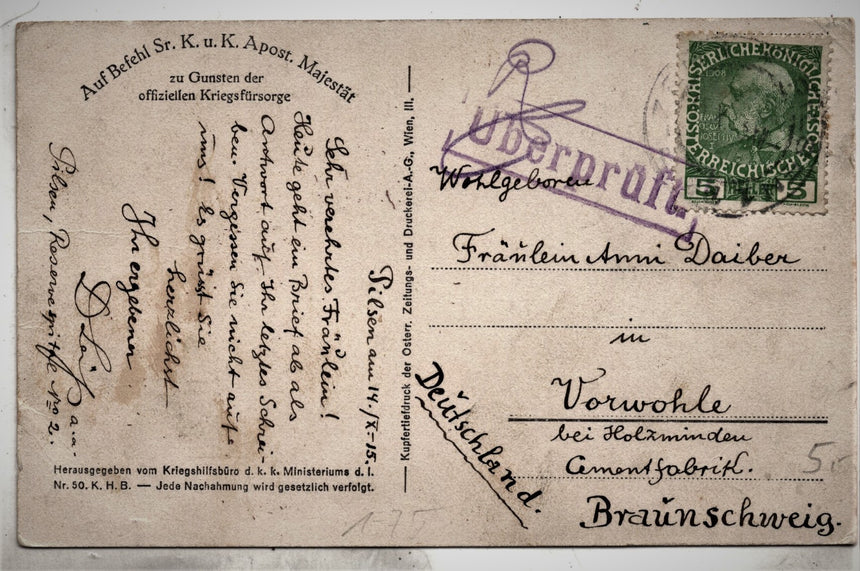 Auf Befehl Sr. K. u. K. Apost. Majestät
zu Gunsten der
offiziellen Kriegsfürsorge
Pilsen am 14./X-15.
Sehr verehrtes Fräulein!
Heute geht ein Brief ab als
Antwort auf Ihr letztes Schrei-
ben. Vergessen Sie nicht auf
uns! Es grüsst Sie
herzlichst
Ihr ergebener
Pilsen, Reservespital No 2.
Herausgegeben vom Kriegshilfsbüro d. k. k. Ministeriums d. I.
Nr. 50. K. H. B. — Jede Nachahmung wird gesetzlich verfolgt.
— Kupfertiefdruck der Österr. Zeitungs- und Druckerei-A.-G., Wien, III. —
Überprüft.
KAISERLICHE KÖNIGLICHE ÖSTERREICHISCHE
1908
5 5
Wohlgeboren
Fräulein Anni Daiber
in
Vorwohle
bei Holzminden
Cementfabrik.
Braunschweig.
Deutschland.
175
5,-